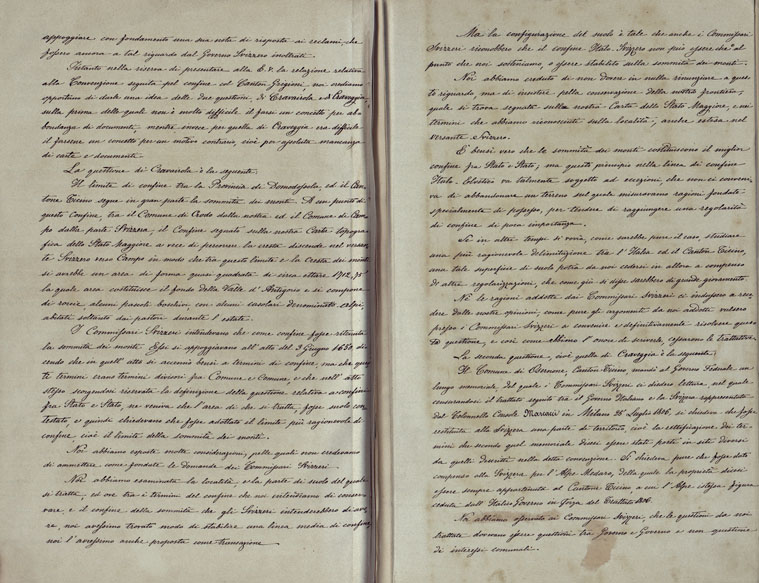 appoggiare con fondamento una sua nota di risposta ai reclami, che
fossero ancora a tal riguardo dal Governo Svizzero inoltrati.
Intanto nella riserva di presentare alla E.V. la relazione relativa
alla Convenzione seguita pel confine col Canton Grigioni, noi crediamo
opportuno di darle una idea delle due questioni, di Cravairola e di Craveggia,
sulla prima delle quali non è molto difficile il farsi un concetto per ab-
bondanza di documenti, mentre invece per quella di Craveggia era difficile
il farsene un concetto per un motivo contrario, cioè per assoluta mancanza
di carte e documenti.
La questione di Cravairola è la seguente.
Il limite di confine tra la Provincia di Domodossola, ed il Can-
tone Ticino segue in gran parte la sommità dei monti. A un punto di
questo Confine, tra il Comune di Crodo dalla nostra ed il Comune di Cam-
po dalla parte Svizzera, il Confine segnato sulla nostra Carta topogra-
fica dello Stato Maggiore a vece di percorrere la cresta discende nel versan-
te Svizzero verso Campo in modo che tra questo limite e la Cresta dei monti
si avrebbe un area di forma quasi quadrata di circa ettare 1912,75
la quale area costituisce il fondo della Valle d'Antigorio e si compone
di roccie alcuni pascoli boschivi con alcuni casolari denominati alpi,
abitati soltanto dai pastori durante l'estate.
I Commissari Svizzeri intendevano che come confine fosse ritenuta
la sommità dei monti. Essi si appoggiavano all'atto del 3 Giugno 1650 di-
cendo che in quell'atto si accennò bensì a termini di confine, ma che que-
sti termini erano termini divisori fra Comune e Comune, e che nell'atto
stesso scorgendosi riservata la definizione della questione relativa a confine
fra Stato e Stato, ne veniva che l'area di che si tratta, fosse suolo con-
testato, e quindi chiedevano che fosse adottato il limite più ragionevole di
confine cioè il limite della sommità dei monti.
Noi abbiamo esposte molte considerazioni, pelle quali non credevamo
di ammettere come fondate le domande dei Commissari Svizzeri.
Noi abbiamo esaminata la località, e la parte di suolo del quale
si tratta, ed ove tra i termini del confine che noi intendiamo di conser-
vare, e il confine della sommità che gli Svizzeri intenderebbero di ave-
re, noi avessimo trovato modo di stabilire una linea media di confine
noi l'avressimo anche proposta come transazione
Ma la configurazione del suolo è tale che anche i Commissari
Svizzeri riconobbero che il confine Italo-Svizzero non può essere che o al
punto che noi sosteniamo, o essere stabilito sulla sommità dei monti.
Noi abbiamo creduto di non dovere in nulla rinunziare a que-
sto riguardo ma di insistere pella conservazione della nostra frontiera,
quale si trova segnata sulla nostra Carta dello Stato Maggiore, e nei
termini che abbiamo riconosciuti sulla località, anche estesa nel
versante Svizzero.
È bensì vero che la sommità dei monti costituiscono il miglior
confine fra Stato e Stato; ma questo principio nella linea di confine
Italo-Elvetico va talmente soggetto ad eccezioni, che non ci conveni-
va di abbandonare un terreno sul quale misuravamo ragioni fondate
specialmente di possesso, per tendere di raggiungere una regolarità
di confine di poca importanza.
Se in altri tempi si vorrà, come sarebbe pure il caso, studiare
una più ragionevole delimitazione tra l'Italia ed il Canton Ticino,
una tale superficie di suolo potrà da noi cedersi in allora a compenso
di altre regolarizzazioni, che come già si disse sarebbero di grande giovamento.
Nè le ragioni addotte dai Commissari Svizzeri ci indussero a rece-
dere dalle nostre opinioni, come pure gli argomenti da noi addotti valsero
presso i Commissari Svizzeri a convenire e definitivamente risolvere que-
sta questione, e così come abbiamo l'onore di scriverle, cessarono le trattative.
La seconda questione, cioè quella di Craveggia è la seguente.
Il Comune di Borgnone, Canton Ticino, mandò al Governo Federale un
lungo memoriale, del quale i Commissari Svizzeri ci diedero lettura, nel quale
censurandosi il trattato seguito tra il Governo Italiano e la Svizzera rappresentata
dal Colonnello Canole Marcacci in Milano 25 Luglio 1806, si chiedeva che fosse
restituita alla Svizzera una parte di territorio, cioè la rettifiazione dei ter-
mini che secondo quel memoriale diceva essere stati posti in siti diversi
da quelli descritti nella detta convenzione. Si chiedeva pure che fosse dato
compenso alla Svizzera per l'Alpe Medaro, della quale la proprietà dicesi
essere sempre appartenuta al Cantone Ticino a cui l'Alpe istessa figura
ceduta dall'Italico Governo in forza del Trattato 1806.
Noi abbiamo osservato ai Commissari Svizzeri, che le questioni da noi
trattate dovevano essere questioni tra Governo e Governo e non questione
di interessi comunali.